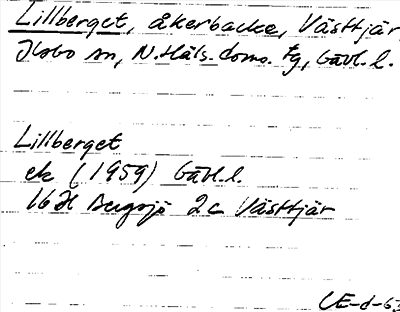 Lillberget, åkerbacke, Västtjär,
Ilsbo sn, N. Häls. doms. fg, Gävl. l.
Lillberget
ek (1959) Gävl. l.
16H Bergsjö 2c Västtjär
UE-d-63